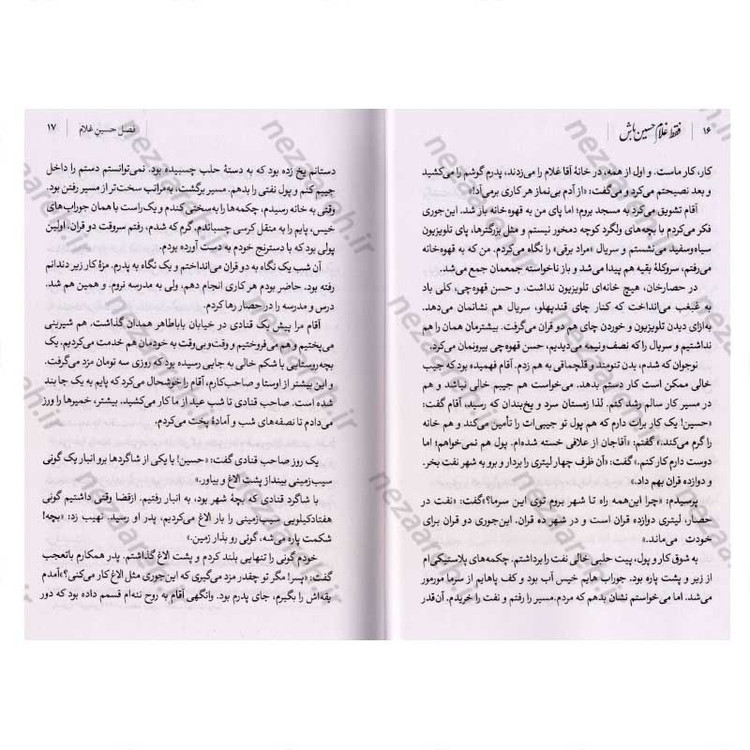 ۱۶ | فقط غلام حسین باش
کار، کار ماست. و اول از همه، در خانهٔ آقا غلام را می‌زدند، پدرم گوشم را می‌کشید
و بعد نصیحتم می‌کرد و می‌گفت: «از آدم بی‌نماز هر کاری برمی‌آد!»
آقام تشویق می‌کرد به مسجد بروم؛ اما پای من به قهوه‌خانه باز شد. این‌جوری
فکر می‌کردم با بچه‌های ولگرد کوچه دمخور نیستم و مثل بزرگترها، پای تلویزیون
سیاه‌وسفید می‌نشستم و سریال «مراد برقی» را نگاه می‌کردم. من که به قهوه‌خانه
می‌رفتم، سروکلهٔ بقیه هم پیدا می‌شد و باز ناخواسته جمعمان جمع می‌شد.
در حصارخان، هیچ خانه‌ای تلویزیون نداشت. و حسن قهوه‌چی، کلی باد
به غبغب می‌انداخت که کنار چای قندپهلو، سریال هم نشانمان می‌دهد.
به‌ازای دیدن تلویزیون و خوردن چای هم دو قران می‌گرفت. بیشترمان همان را هم
نداشتیم و سریال را که نصف‌ونیمه می‌دیدیم، حسن قهوه‌چی بیرونمان می‌کرد.
نوجوان که شدم، بدن تنومند و قلچماقی به هم زدم. آقام فهمیده بود که جیب
خالی ممکن است کار دستم بدهد. می‌خواست هم جیبم خالی نباشد و هم
در مسیر کار سالم رشد کنم. لذا زمستان سرد و یخ‌بندان که رسید، آقام گفت:
«حسین! یک کار برات دارم که هم پول تو جیبی‌ات را تأمین می‌کند و هم خانه
را گرم می‌کند.» گفتم: «آقاجان از علافی خسته شده‌ام. پول هم نمی‌خواهم؛ اما
دوست دارم کار کنم.» گفت: «آن ظرف چهار لیتری را بردار و برو به شهر نفت بخر.
و دوازده قران بهم داد.»
پرسیدم: «چرا این‌همه راه تا شهر بروم توی این سرما؟» گفت: «نفت در
حصار، لیتری دوازده قران است و در شهر ده قران. این‌جوری دو قران برای
خودت می‌ماند.»
به شوق کار و پول، پیت حلبی خالی نفت را برداشتم. چکمه‌های پلاستیکی‌ام
از زیر و پشت پاره بود. جوراب هایم خیس آب بود و کف پاهایم از سرما مورمور
می‌شد. اما می‌خواستم نشان بدهم که مردم. مسیر را رفتم و نفت را خریدم. آن‌قدر
فصل حسین غلام | ۱۷
دستانم یخ زده بود که به دستهٔ حلب چسبیده بود. نمی‌توانستم دستم را داخل
جیبم کنم و پول نفتی را بدهم. مسیر برگشت، به‌مراتب سخت‌تر از مسیر رفتن بود.
وقتی به خانه رسیدم، چکمه‌ها را به‌سختی کندم و یک‌راست با همان جوراب‌های
خیس، پایم را به منقل کرسی چسباندم. گرم که شدم، رفتم سروقت دو قران. اولین
پولی بود که با دسترنج خودم به دست آورده بودم.
آن شب یک نگاه به دو قران می‌انداختم و یک نگاه به پدرم. مزهٔ کار زیر دندانم
رفته بود. حاضر بودم هر کاری انجام دهم، ولی به مدرسه نروم. و همین هم شد.
درس و مدرسه را در حصار رها کردم.
آقام مرا پیش یک قنادی در خیابان باباطاهر همدان گذاشت. هم شیرینی
می‌پختیم و هم می‌فروختیم و وقت‌و بی‌وقت به خودمان هم خدمت می‌کردیم. یک
بچه‌روستایی با شکم خالی به جایی رسیده بود که روزی سه تومان مزد می‌گرفت.
و این بیشتر از اوستا و صاحب‌کارم، آقام را خوشحال می‌کرد که پایم به یک جا بند
شده است. صاحب قنادی تا شب عید از ما کار می‌کشید. بیشتر، خمیرها را ورز
می‌دادم تا نصفه‌های شب و آمادهٔ پخت می‌کردم.
یک روز صاحب قنادی گفت: «حسین! با یکی از شاگردها برو انبار یک گونی
سیب‌زمینی بینداز پشت الاغ و بیاور.»
با شاگرد قنادی که بچهٔ شهر بود، به انبار رفتیم. ازقضا وقتی داشتیم گونی
هفتادکیلویی سیب‌زمینی را بار الاغ می‌کردیم، پدر او رسید. نهیب زد: «بچه!
شکمت پاره می‌شه، گونی رو بذار زمین.»
خودم گونی را تنهایی بلند کردم و پشت الاغ گذاشتم. پدر همکارم باتعجب
گفت: «پسر! مگر تو چقدر مزد می‌گیری که این‌جوری مثل الاغ کار می‌کنی؟» آمدم
یقه‌اش را بگیرم، جای پدرم بود. وانگهی آقام به روح ننه‌ام قسمم داده بود که دور
nezaareh.ir